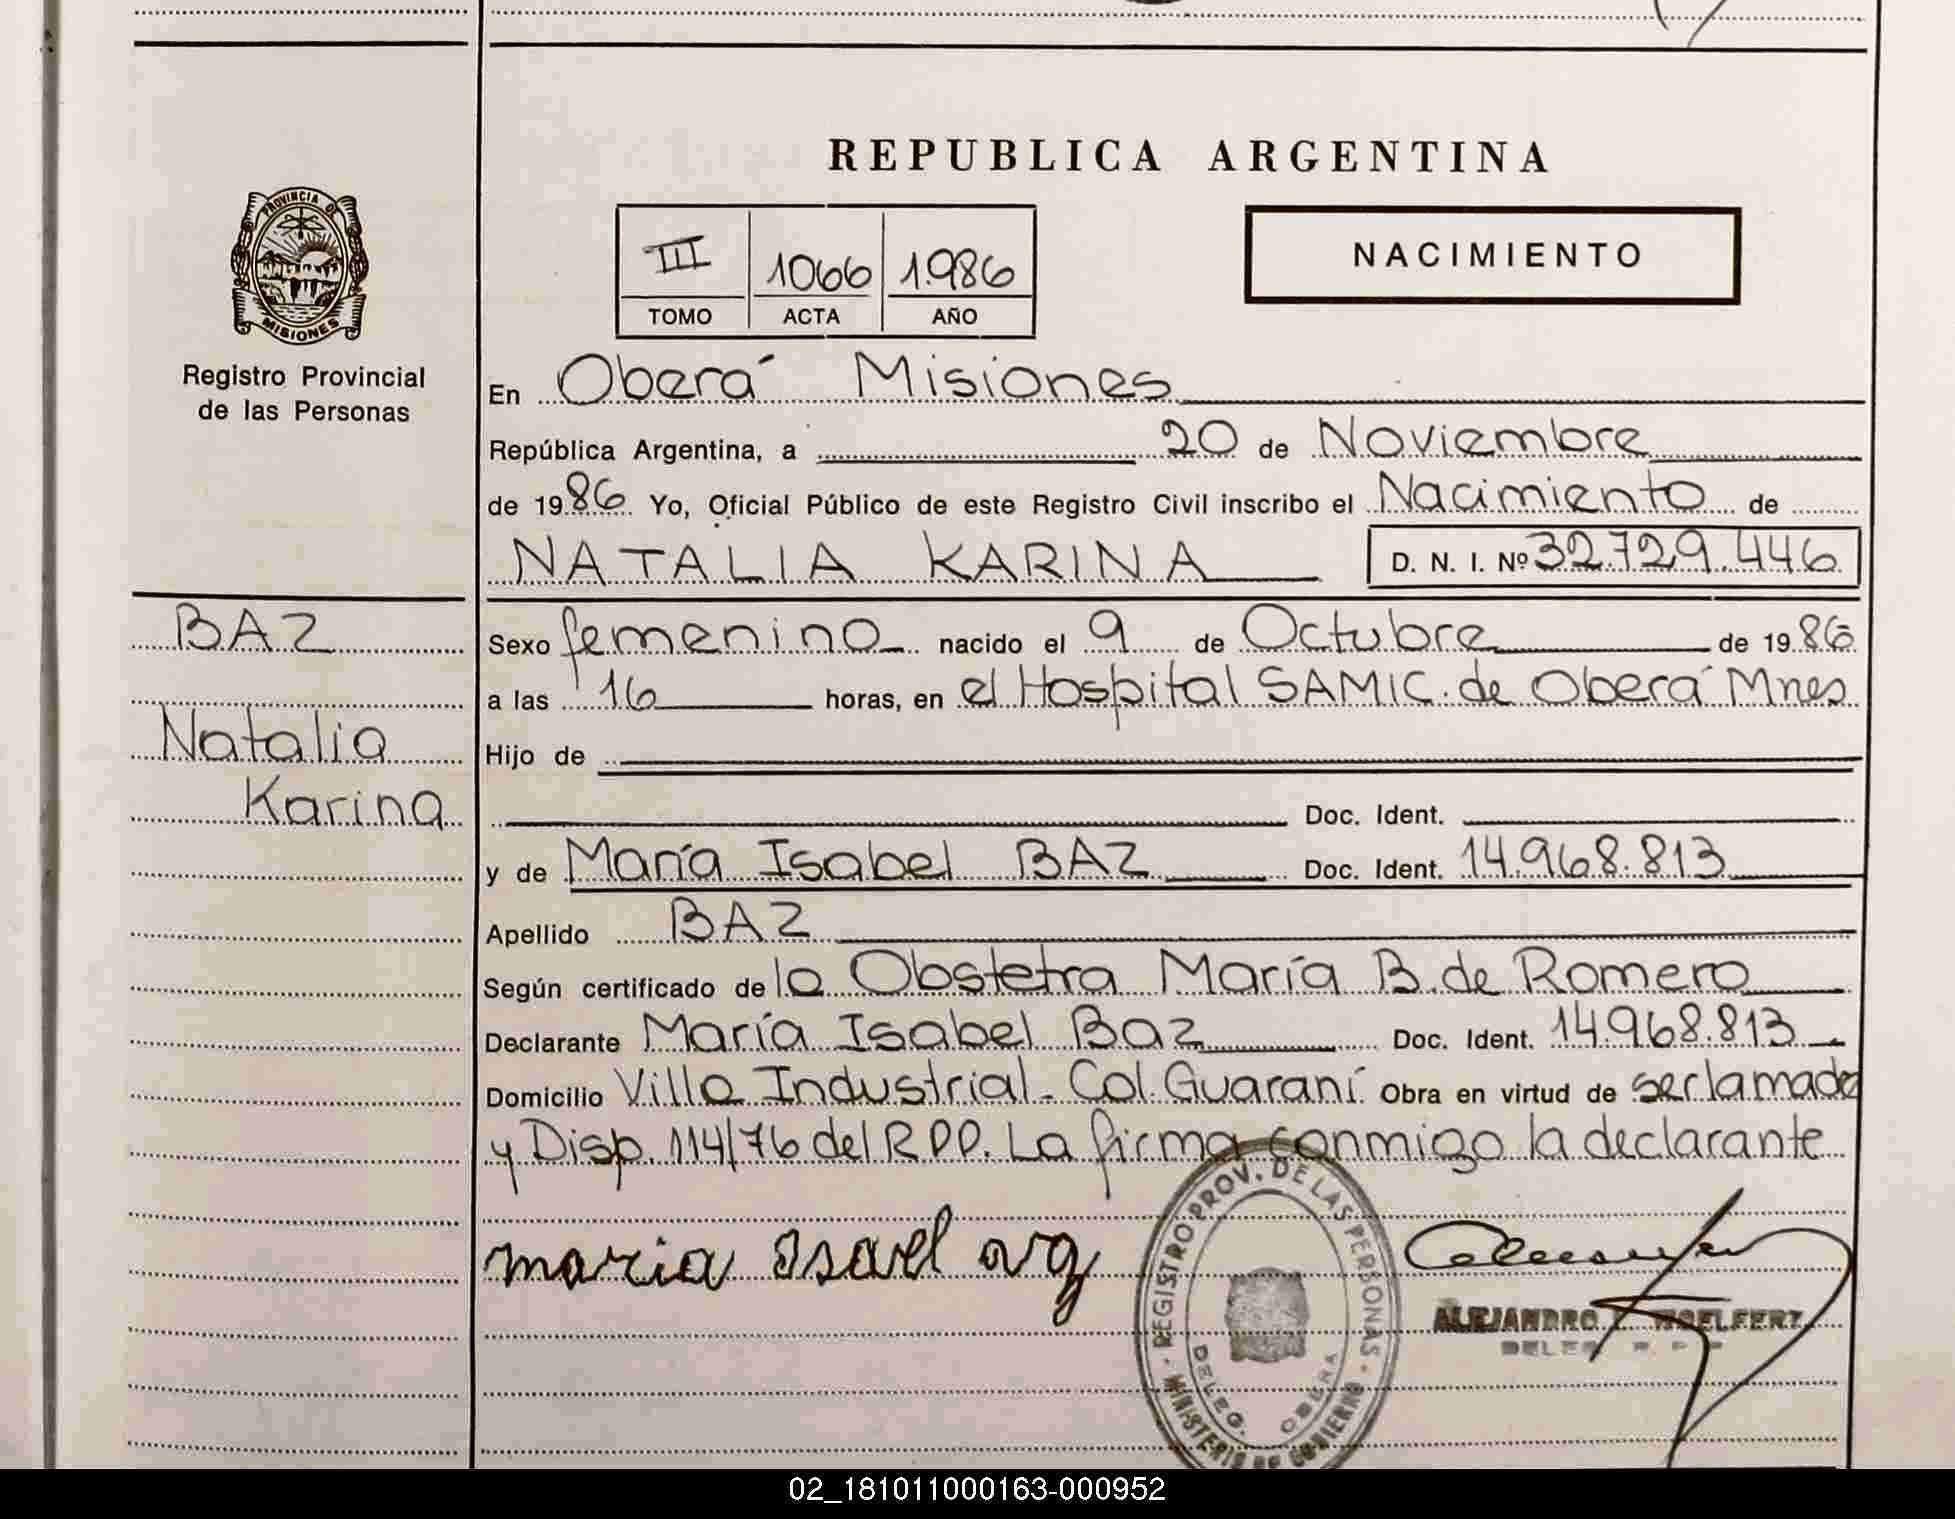 REPUBLICA ARGENTINA
PROVINCIA DE
MISIONES
Registro Provincial
de las Personas
III 1066 1.986
TOMO ACTA AÑO
NACIMIENTO
En Oberá Misiones
República Argentina, a 20 de Noviembre
de 1986 Yo, Oficial Público de este Registro Civil inscribo el Nacimiento de
NATALIA KARINA D. N. I. Nº 32.729.446
BAZ
Natalia
Karina
Sexo femenino nacido el 9 de Octubre de 1986
a las 16 horas, en el Hospital SAMIC. de Oberá Mnes
Hijo de
Doc. Ident.
y de María Isabel BAZ Doc. Ident. 14.968.813
Apellido BAZ
Según certificado de la Obstetra María B. de Romero
Declarante María Isabel Baz Doc. Ident. 14.968.813
Domicilio Villa Industrial - Col. Guaraní Obra en virtud de ser lamadre
y Disp. 114/76 del R.P.P. La firma conmigo la declarante
maria isael
REGISTRO PROV. DE LAS PERSONAS
DELEG. OBERA
MINISTERIO DE GOBIERNO
ALEJANDRO
02_181011000163-000952